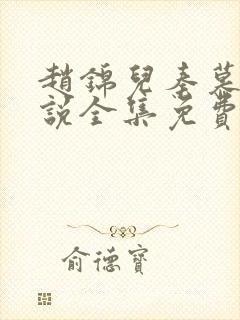 趙錦兒秦慕
說全集免費
俞德寶